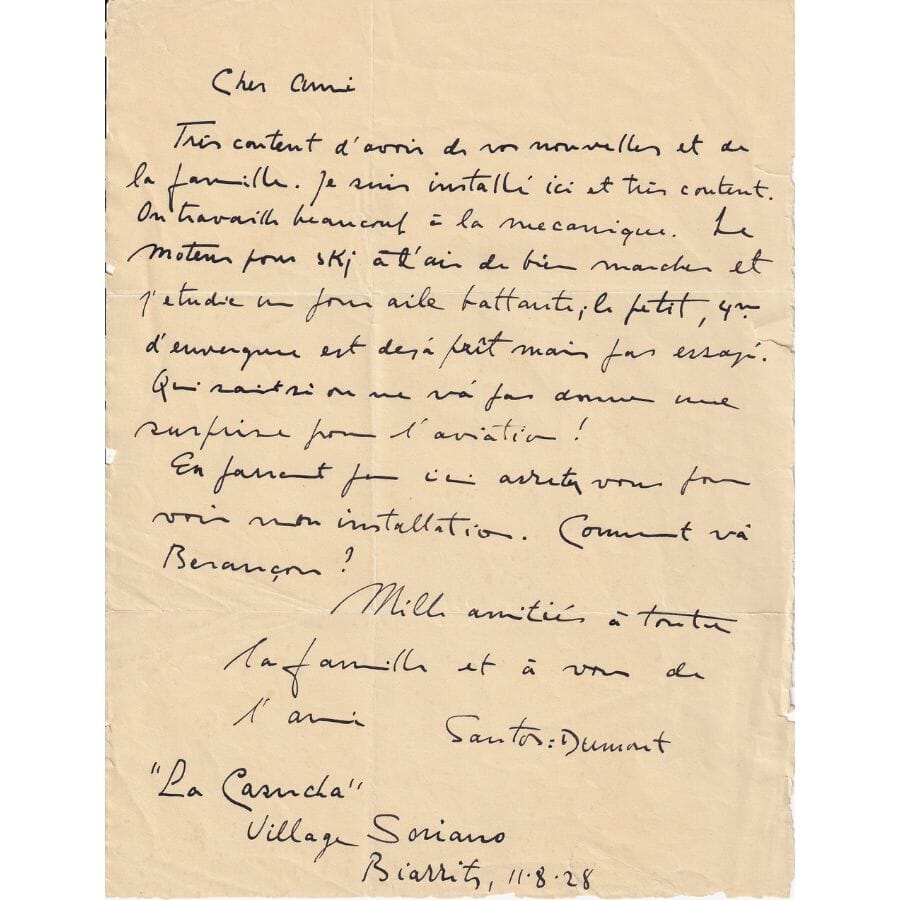 Cher Ami
Très content d'avoir de vos nouvelles et de
la famille. Je suis installé ici et très content.
On travaille beaucoup à la mecanique. Le
moteur pour skj à l'air de bien marcher et
j'etudie un pour aile battante; le petit, 4m
d'envergure est dejá prêt mais pas essayé.
Qui sait si on ne vá pas donner une
surprise pour l'aviátion!
En passant par ici arretez vous pour
voir mon installation. Comment vá
Besançon?
Mille amitiés à toute
la famille et à vous de
l'ami Santos=Dumont
"La Casucha"
Village Soriano
Biarrits, 11.8.28